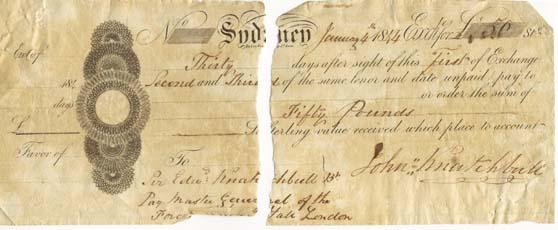 No Sydney January 4th 1844 Exch for £ 50 Stg
Exd of
Thirty days after sight of this First of Exchange
184 Second and Third of the same tenor and date unpaid, pay to
days or order the sum of
Fifty Pounds
£ Sterling value received which place to account
Favor of
To John Knatchbull
Sir Edwd Knatchbull Bt
Pay Master General of the
Forces Yall London